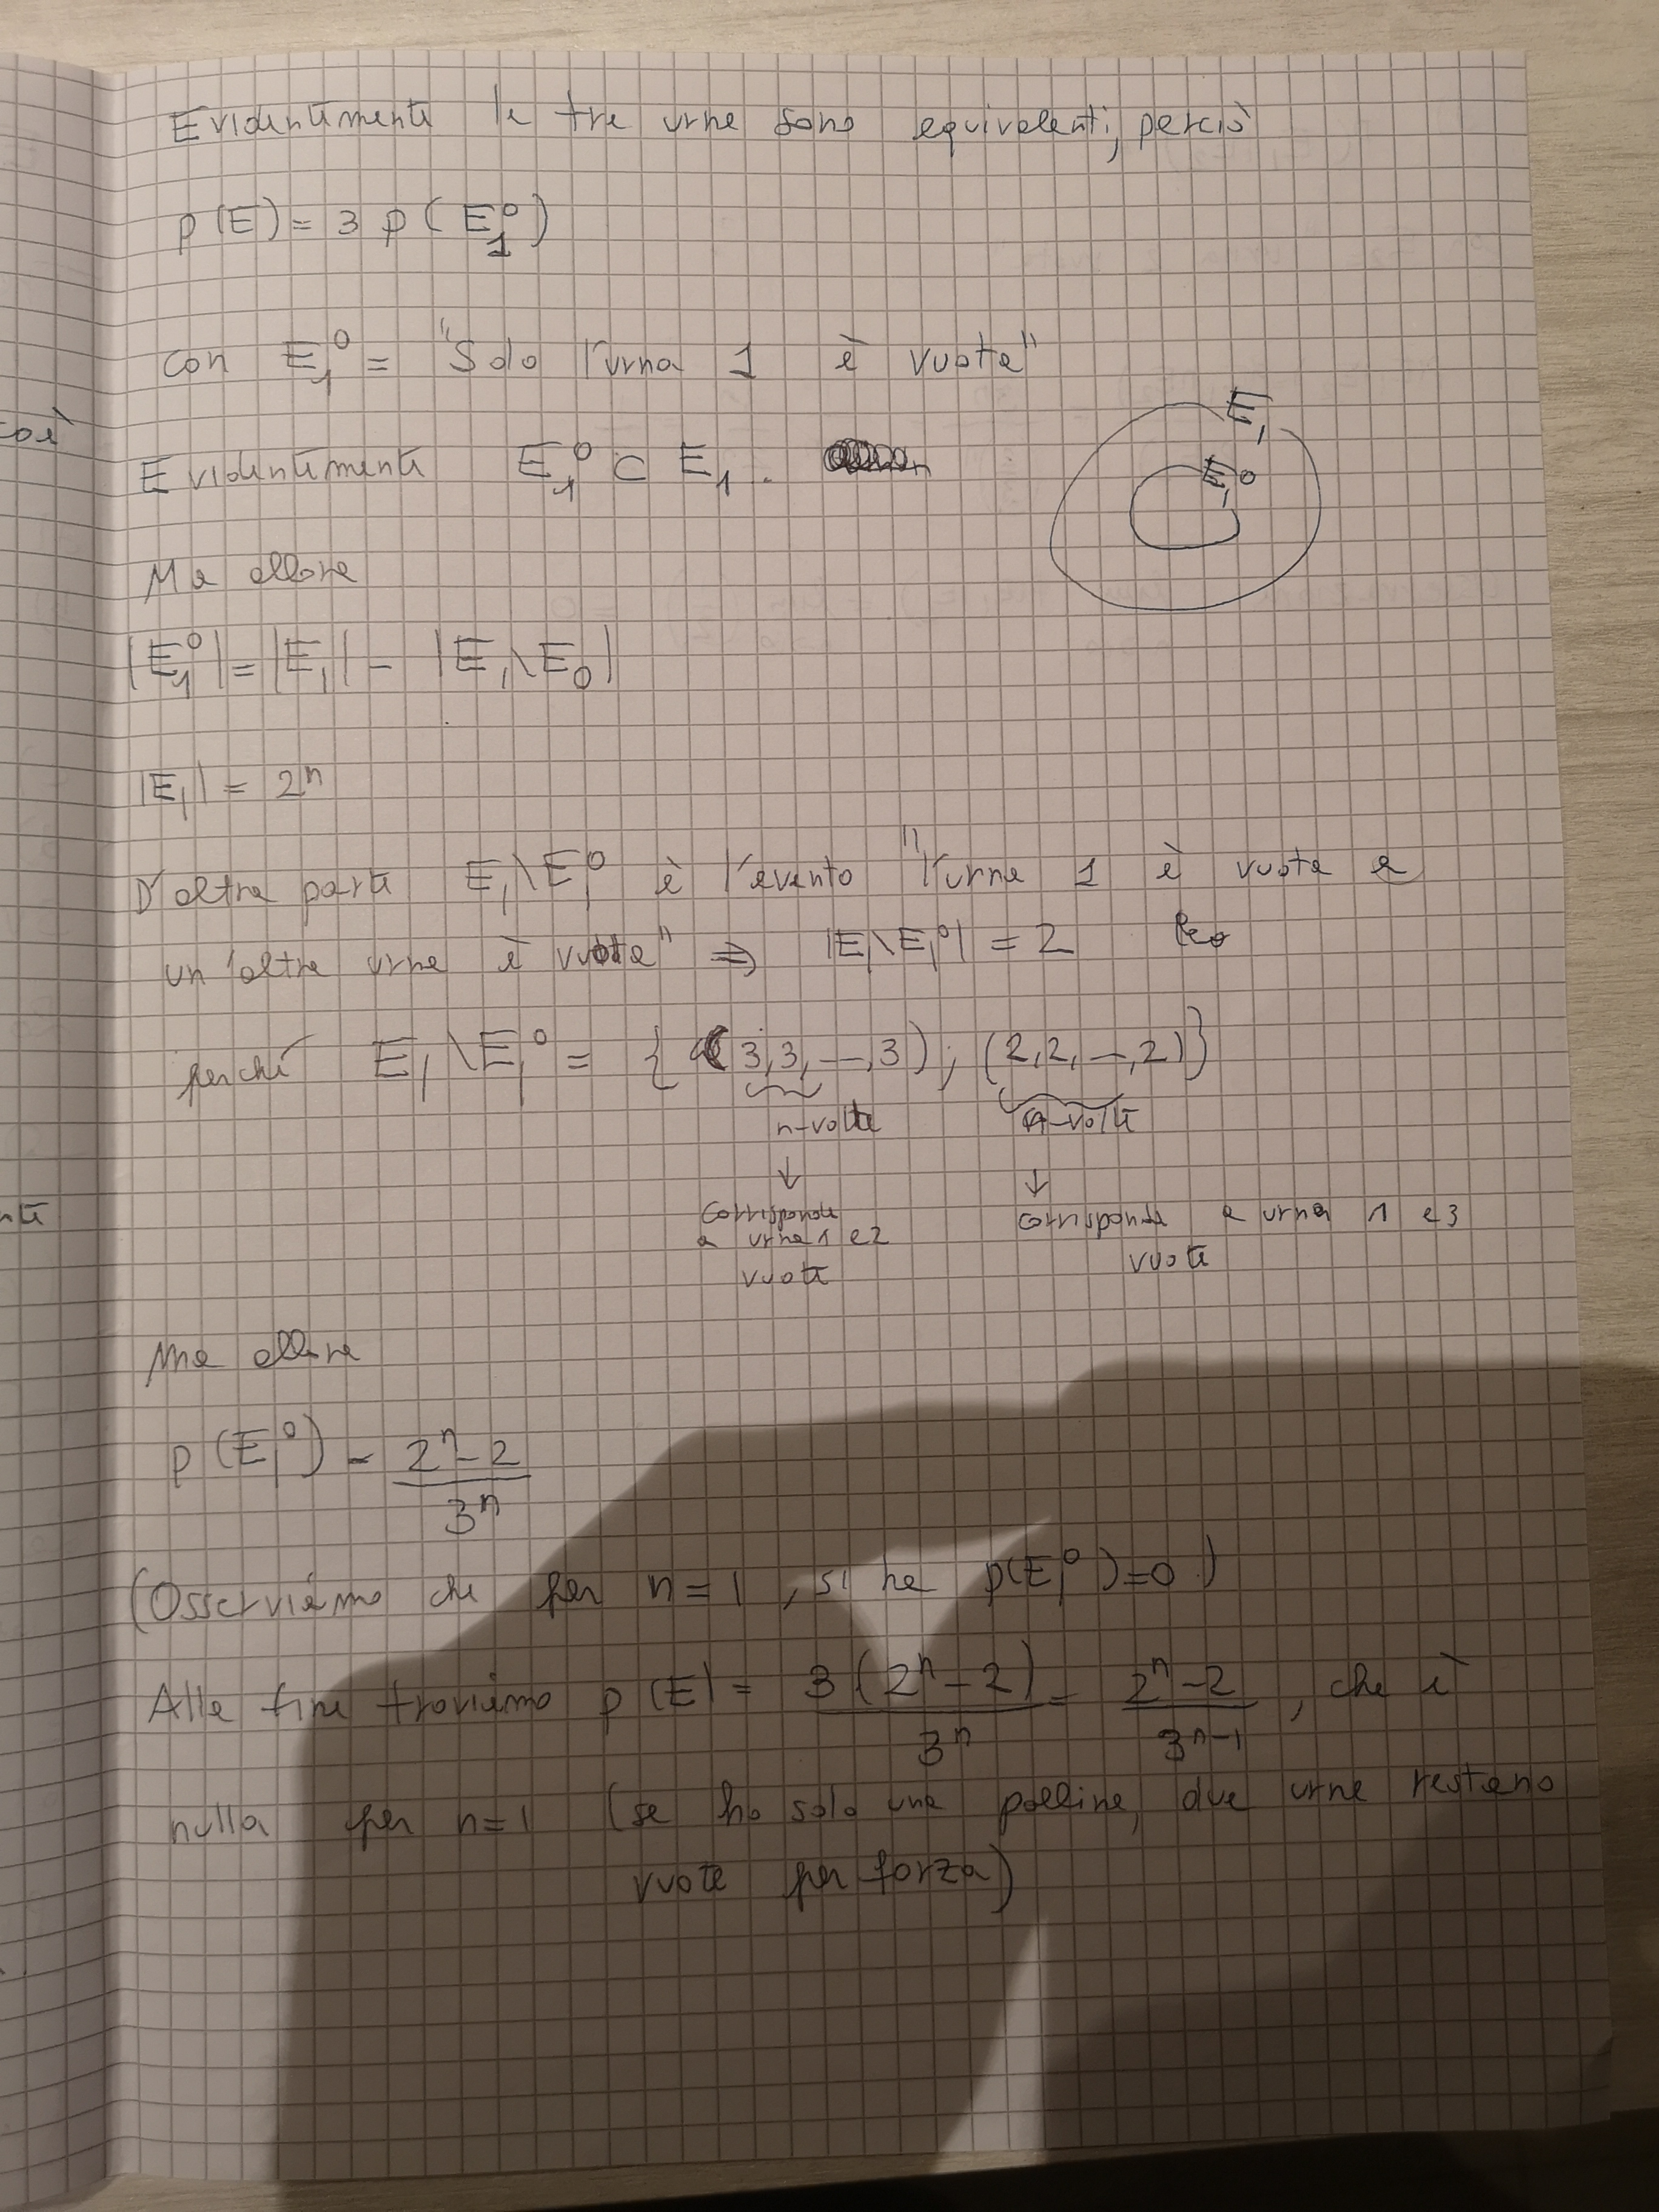 Evidentemente le tre urne sono equivalenti, perciò
p(E) = 3 p(E₁⁰)
con E₁⁰ = "Solo l'urna 1 è vuota"
Evidentemente E₁⁰ ⊂ E₁.
E₁
E₁⁰
Ma allora
|E₁⁰| = |E₁| - |E₁\E₀|
|E₁| = 2ⁿ
D'altra parte E₁\E₁⁰ è l'evento "l'urna 1 è vuota e
un'altra urna è vuota" ⇒ |E₁\E₁⁰| = 2
perché E₁\E₁⁰ = { (3,3,—,3) ; (2,2,—,2)}
n-volte n-volte
↓ ↓
corrisponde a urna 1 e 2 vuote
corrisponde a urna 1 e 3 vuote
Ma allora
p(E₁⁰) = (2ⁿ-2)/3ⁿ
(Osserviamo che per n=1, si ha p(E₁⁰)=0.)
Alla fine troviamo p(E) = 3(2ⁿ-2)/3ⁿ = (2ⁿ-2)/3ⁿ⁻¹, che è
nulla per n=1 (se ho solo una pallina, due urne restano
vuote per forza)